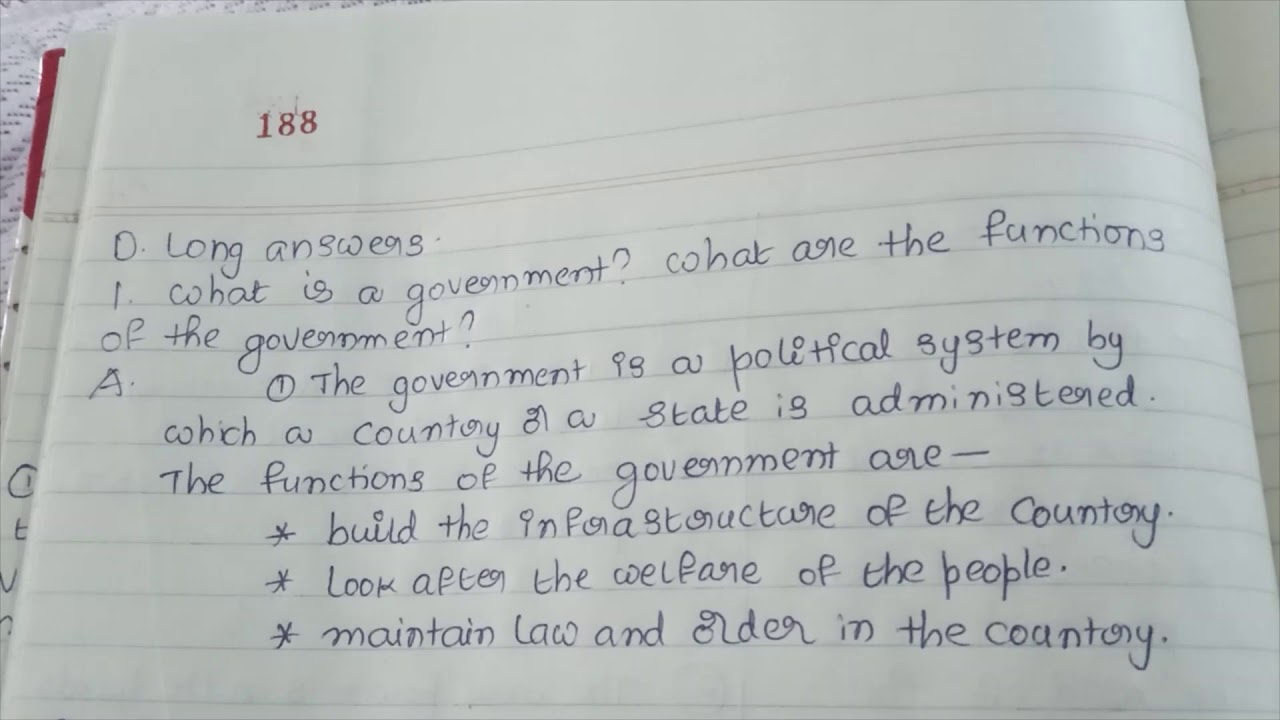 188
D. Long answers.
1. What is a government? What are the functions
of the government?
A. ① The government is a political system by
which a country or a state is administered.
The functions of the government are—
* build the infrastructure of the country.
* look after the welfare of the people.
* maintain law and order in the country.